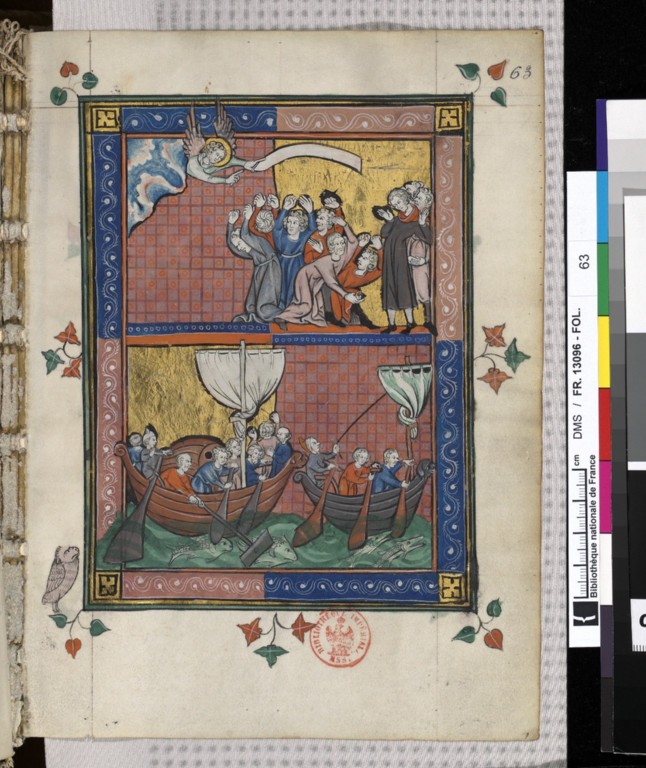 63
BIBLIOTHÈQUE IMPÉRIALE
MSS.
63
DMS / FR. 13096 - FOL.
cm
Bibliothèque nationale de France